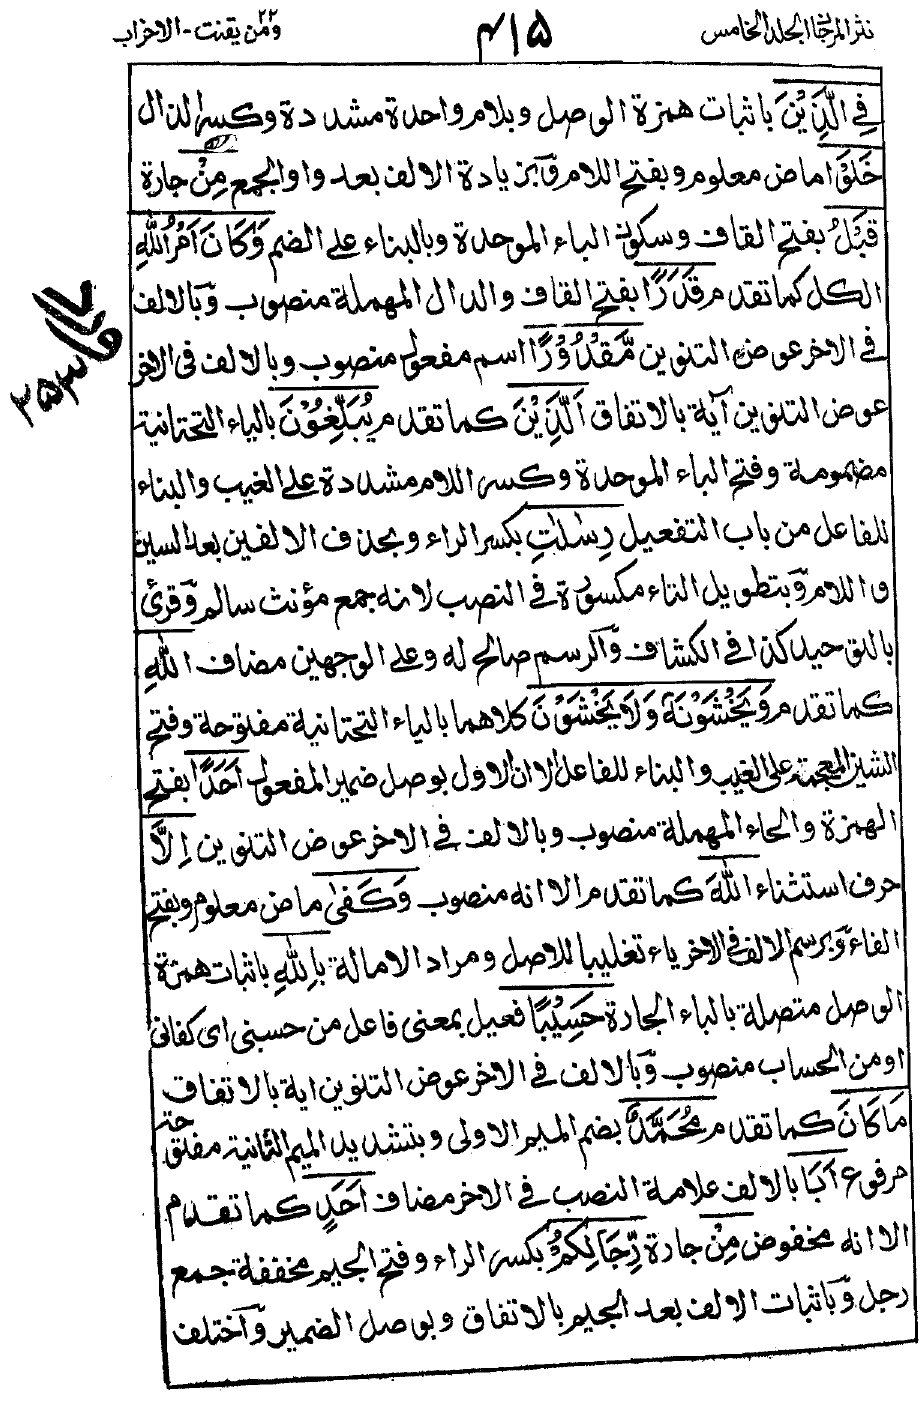 نثر المرجان المجلد الخامس
۴۱۵
ومن يقنت ۲۲ - الاحزاب
فِي الَّذِيْنَ باثبات همزة الوصل وبلام واحدة مشددة وكسر الذال
خَلَوْا ماض معلوم وبفتح اللام وبزيادة الالف بعد واو الجمع مِنْ جارة
قَبْلُ بفتح القاف وسكون الباء الموحدة وبالبناء على الضم وَكَانَ اَمْرُ اللّٰهِ
الكل كما تقدم قَدَرًا بفتح القاف والدال المهملة منصوب وبالالف
في الاخر عوض التنوين مَّقْدُوْرًا اسم مفعول منصوب وبالالف في الاخر
عوض التنوين آية بالاتفاق اَلَّذِيْنَ كما تقدم يُبَلِّغُوْنَ بالياء التحتانية
مضمومة وفتح الباء الموحدة وكسر اللام مشددة على الغيب والبناء
للفاعل من باب التفعيل رِسٰلٰتِ بكسر الراء وبحذف الالفين بعد السين
واللام وبتطويل التاء مكسورة في النصب لانه جمع مؤنث سالم وقرئ
بالتوحيد كذا في الكشاف والرسم صالح له وعلى الوجهين مضاف اللّٰهِ
كما تقدم وَيَخْشَوْنَهٗ وَلَا يَخْشَوْنَ كلاهما بالياء التحتانية مفتوحة وفتح
الشين المعجمة على الغيب والبناء للفاعل الا ان الاول بوصل ضمير المفعول اَحَدًا بفتح
الهمزة والحاء المهملة منصوب وبالالف في الاخر عوض التنوين اِلَّا
حرف استثناء اللّٰهَ كما تقدم الا انه منصوب وَكَفٰى ماض معلوم وبفتح
الفاء وبرسم الالف في الاخر ياء تغليبا للاصل ومراد الامالة بِاللّٰهِ باثبات همزة
الوصل متصلة بالباء الجارة حَسِيْبًا فعيل بمعنى فاعل من حسبنى اى كفانى
او من الحساب منصوب وبالالف في الاخر عوض التنوين اية بالاتفاق
مَا كَانَ كما تقدم مُحَمَّدٌ بضم الميم الاولى وبتشديد الميم الثانية مفتوحة
مرفوع اَبَا بالالف علامة النصب في الاخر مضاف اَحَدٍ كما تقدم
الا انه مخفوض مِنْ جارة رِّجَالِكُمْ بكسر الراء وفتح الجيم مخففة جمع
رجل وباثبات الالف بعد الجيم بالاتفاق وبوصل الضمير واختلف
۲۵۳